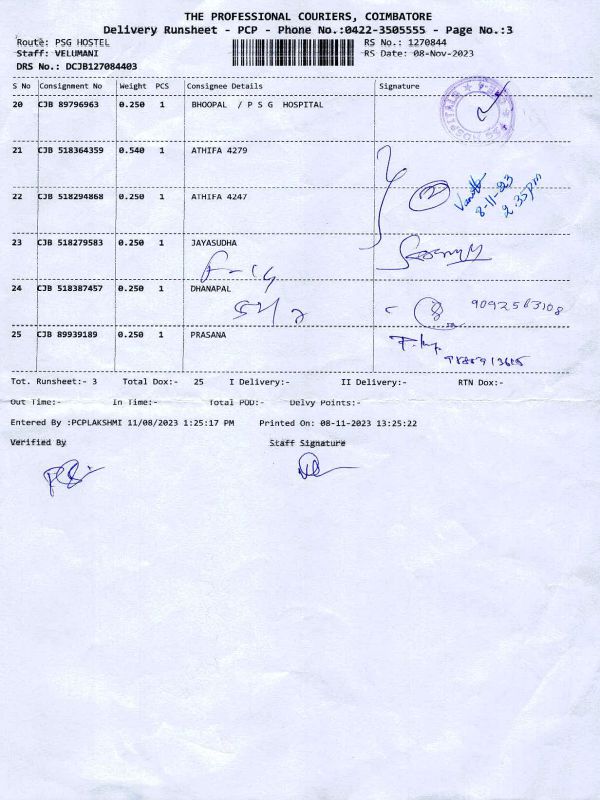 THE PROFESSIONAL COURIERS, COIMBATORE
Delivery Runsheet - PCP - Phone No.:0422-3505555 - Page No.:3
Route: PSG HOSTEL RS No.: 1270844
Staff: VELUMANI RS Date: 08-Nov-2023
DRS No.: DCJB127084403
S No Consignment No Weight PCS Consignee Details Signature
20 CJB 89796963 0.250 1 BHOOPAL / P S G HOSPITAL
21 CJB 518364359 0.540 1 ATHIFA 4279
22 CJB 518294868 0.250 1 ATHIFA 4247
8-11-2023
2.35pm
23 CJB 518279583 0.250 1 JAYASUDHA
F-14
24 CJB 518387457 0.250 1 DHANAPAL
9092563108
25 CJB 89939189 0.250 1 PRASANA
Tot. Runsheet:- 3 Total Dox:- 25 I Delivery:- II Delivery:- RTN Dox:-
Out Time:- In Time:- Total POD:- Delvy Points:-
Entered By :PCPLAKSHMI 11/08/2023 1:25:17 PM Printed On: 08-11-2023 13:25:22
Verified By Staff Signature